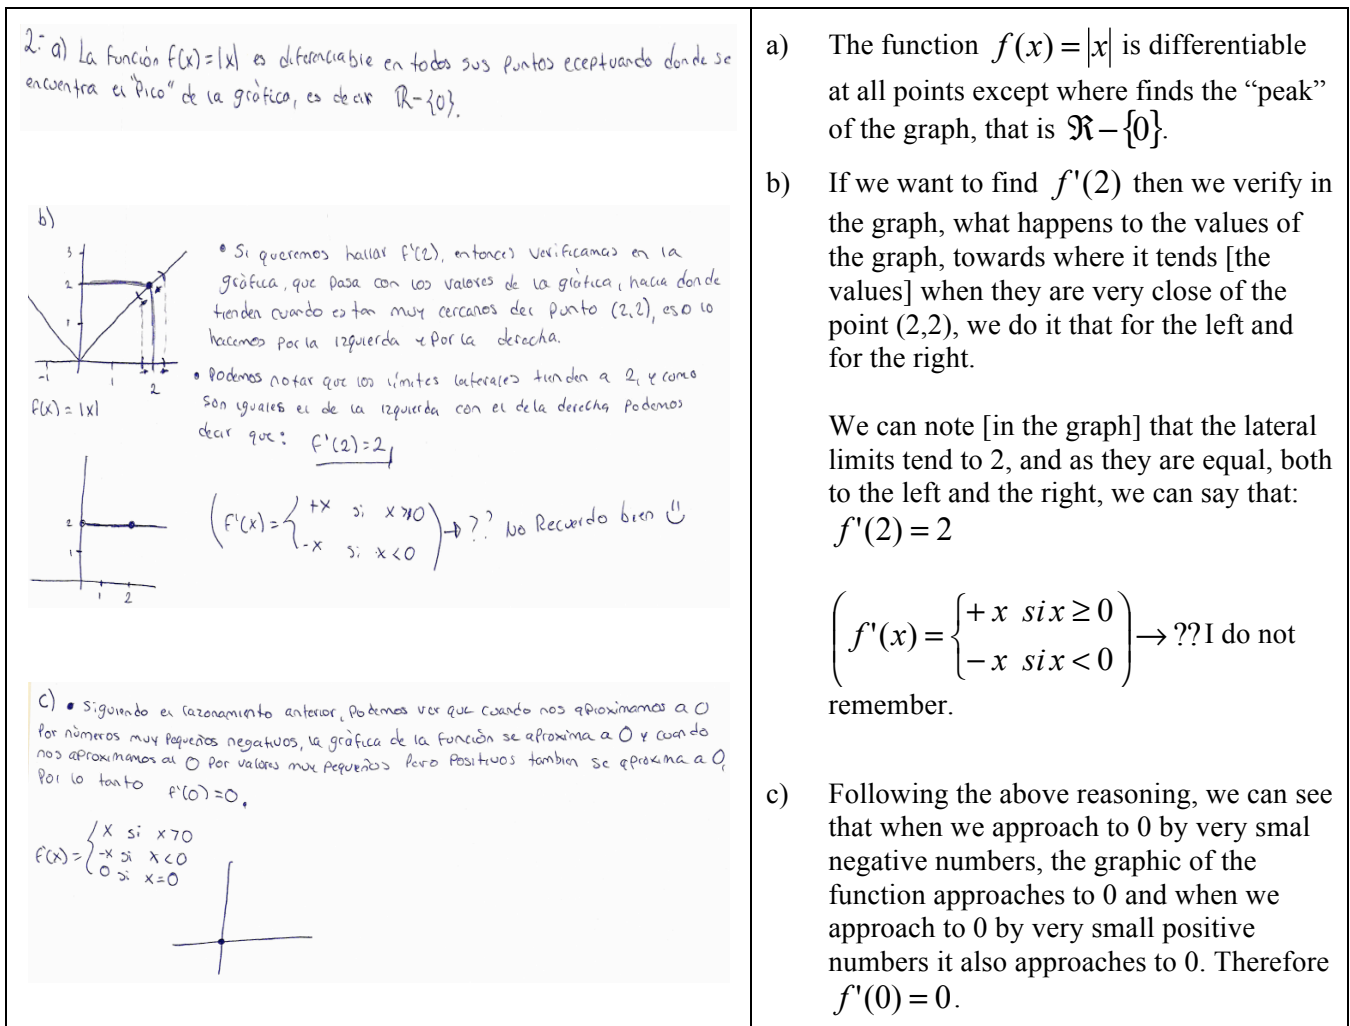 2.- a) La función f(x)=|x| es diferenciable en todos sus puntos eceptuando donde se
encuentra el "Pico" de la gráfica, es decir ℝ-{0}.
b)
3
2
1
-1
1
2
f(x) = |x|
• Si queremos hallar f'(2), entonces verificamos en la
gráfica, que pasa con los valores de la gráfica, hacia donde
tienden cuando estan muy cercanos del punto (2,2), eso lo
hacemos por la izquierda y por la derecha.
• Podemos notar que los límites laterales tienden a 2, y como
son iguales el de la izquierda con el de la derecha podemos
decir que: f'(2)=2
2
1
1 2
(f'(x) = { +x si x≥0
-x si x<0 ) → ?? No Recuerdo bien
c) • Siguiendo el razonamiento anterior, podemos ver que cuando nos aproximamos a 0
por números muy pequeños negativos, la gráfica de la función se aproxima a 0 y cuando
nos aproximamos al 0 por valores muy pequeños pero positivos tambien se aproxima a 0,
Por lo tanto f'(0)=0.
f(x) = { x si x>0
-x si x<0
0 si x=0
a) The function f(x) = |x| is differentiable
at all points except where finds the “peak”
of the graph, that is ℜ – {0}.
b) If we want to find f'(2) then we verify in
the graph, what happens to the values of
the graph, towards where it tends [the
values] when they are very close of the
point (2,2), we do it that for the left and
for the right.
We can note [in the graph] that the lateral
limits tend to 2, and as they are equal, both
to the left and the right, we can say that:
f'(2) = 2
( f'(x) = { + x six ≥ 0
– x six < 0 ) → ?? I do not
remember.
c) Following the above reasoning, we can see
that when we approach to 0 by very smal
negative numbers, the graphic of the
function approaches to 0 and when we
approach to 0 by very small positive
numbers it also approaches to 0. Therefore
f'(0) = 0.